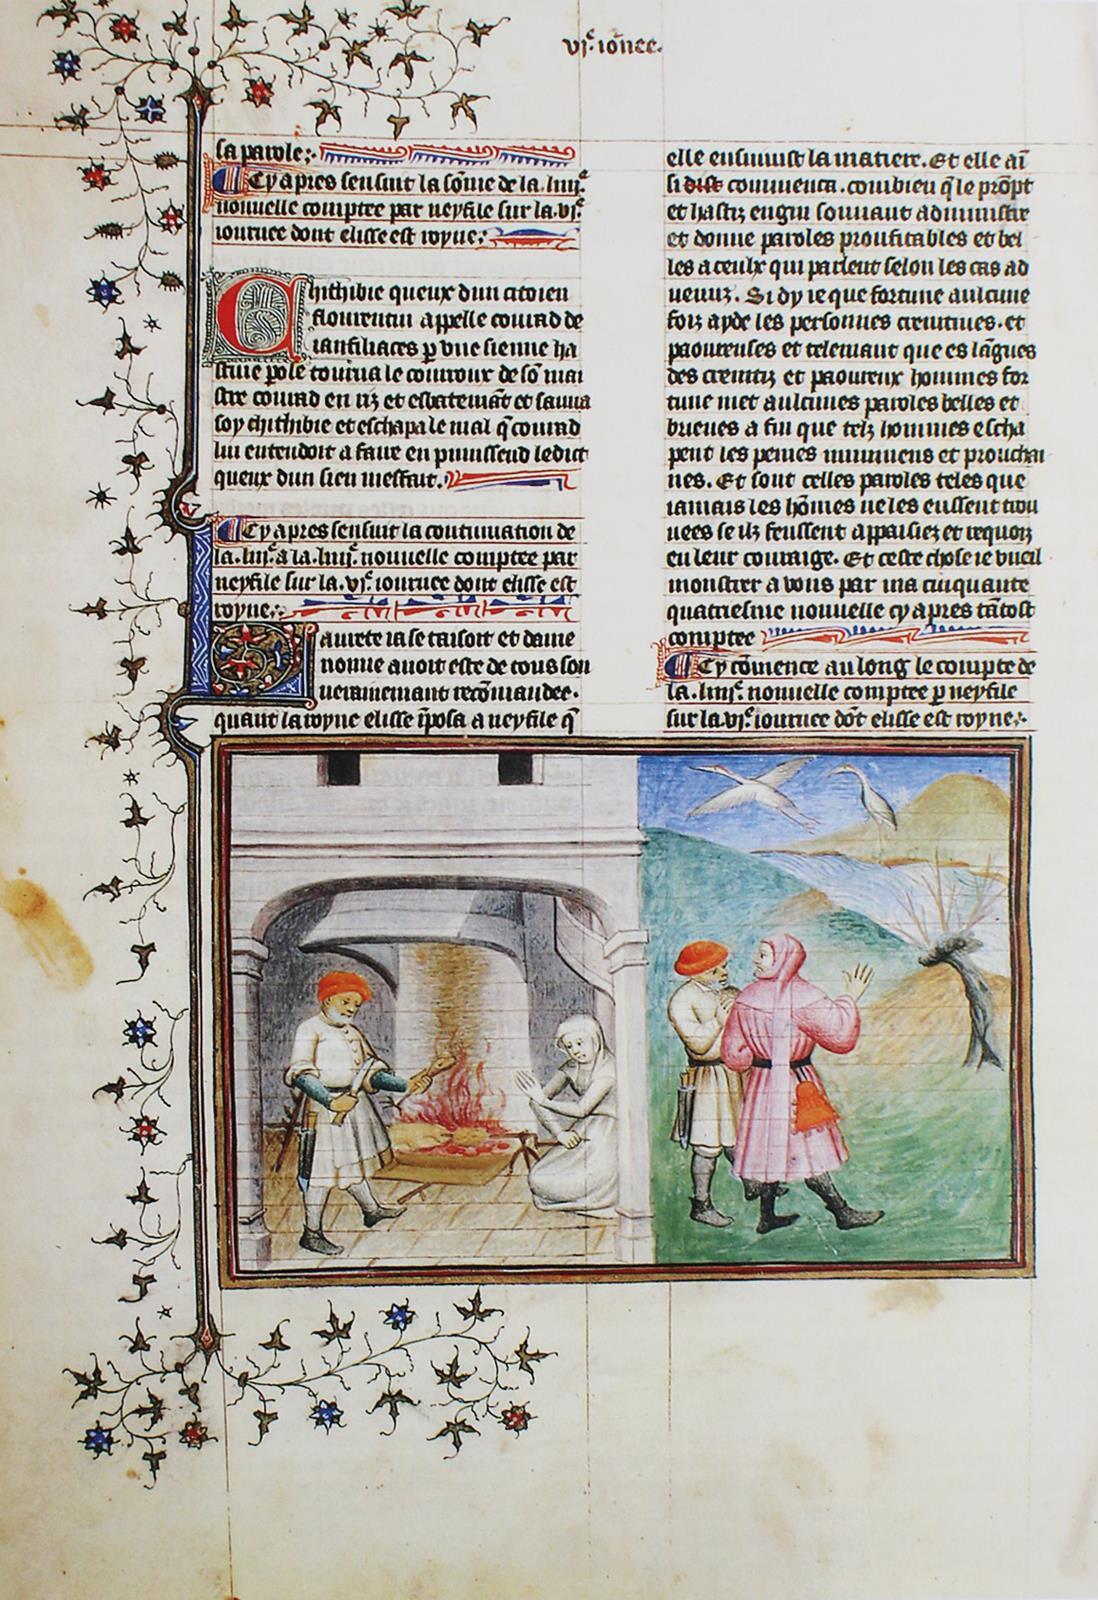 vje ionee.
sa parole:.
Cy apres sensuit la sõme de la .iiije
nouuelle comptee par neyfile sur la .vje
iournee dont elisse est royne:
Chithibie queux dun citoien
flourentin appelle courad de
ianfiliaces p vne sienne ha
stiue pole tourna le couroux de sõ mai
stre courad en riz et esbatemãt et sauua
soy chithibie et eschapa le mal q̃ courad
lui entendoit a faire en punissend ledict
queux dun sien meffait.
Cy apres sensuit la continuation de
la .iije a la .iiije nouuelle comptee par
neyfile sur la .vje iournee dont elisse est
royne:.
Laurete ia se taisoit et dame
nonne auoit este de tous sou
uerainemant recõmandee.
quant la royne elisse ĩposa a neyfile q̃
elle ensuiuist la matiere. Et elle aĩ
si dist commenca. combien q̃ le prõpt
et hastiz engin souuant administre
et donne paroles proufitables et bel
les a ceulx qui parlent selon les cas ad
uenuz. Si dy ie que fortune aulcune
foiz ayde les personnes cremeues. et
paoureuses et telemant que es lãgues
des cremtiz et paoureux hommes for
tune met aulcunes paroles belles et
brieues a fin que telz hommes escha
pent les peines iminuens et prouchai
nes. Et sont celles paroles teles que
iamais les hõmes ne les eussent trou
uees se ilz feussent appaisiez et requoiz
en leur couraige. Et ceste chose ie vueil
monstrer a vous par ma cinquante
quatriesme nouuelle cy apres tãtost
comptee
Cy cõmence au long le compte de
la .iiije nouuelle comptee p neyfile
sur la .vje iournee dõt elisse est royne:.